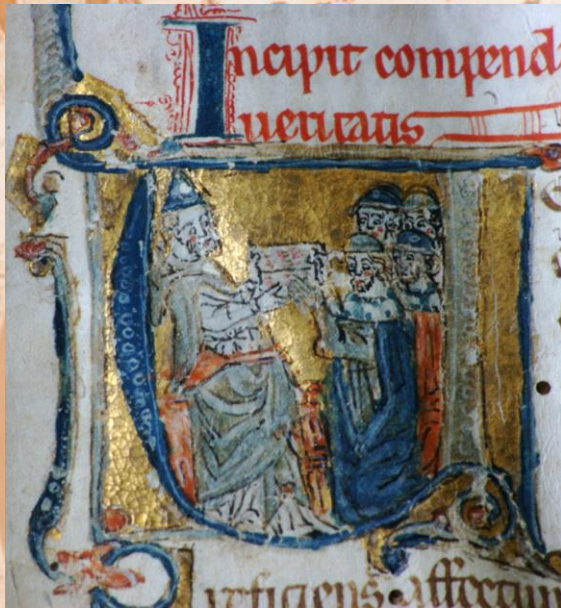 Incipit compendi
ueritatis
affectum